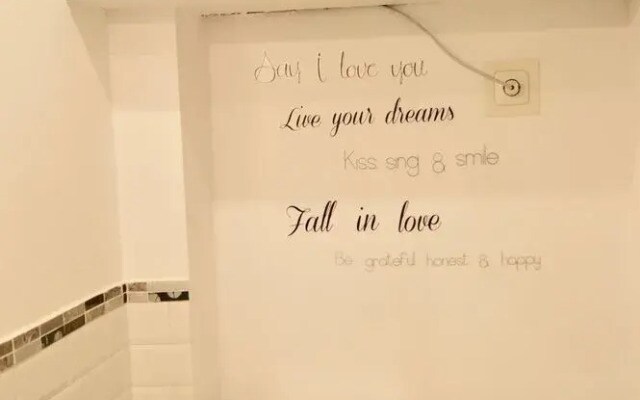 Say I love you
Live your dreams
Kiss sing & smile
Fall in love
Be grateful honest & happy